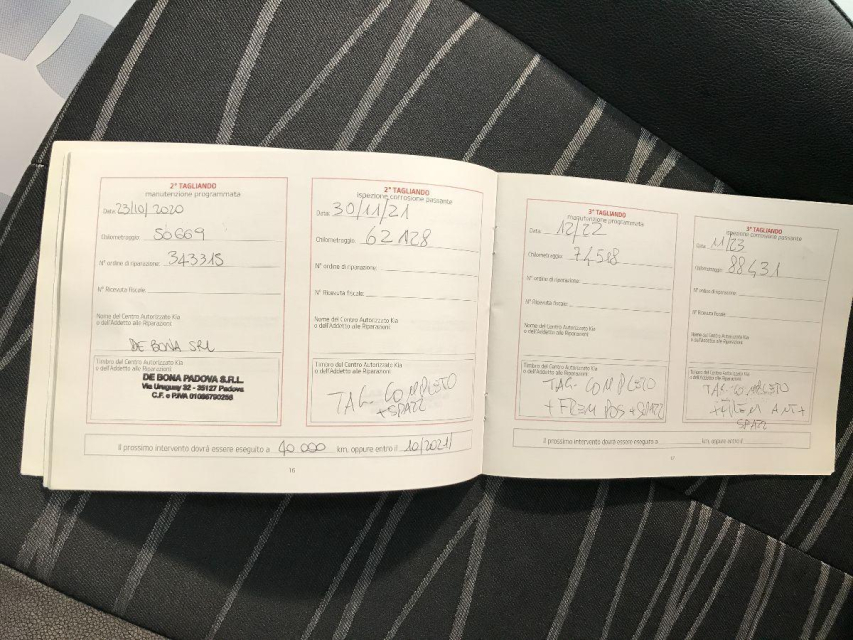 2° TAGLIANDO
manutenzione programmata
Data 23/10/2020
Chilometraggio 50669
N° ordine di riparazione: 343315
N° Ricevuta fiscale:
Nome del Centro Autorizzato Kia
o dell'Addetto alle Riparazioni
DE BONA SRL
Timbro del Centro Autorizzato Kia
o dell'Addetto alle Riparazioni
DE BONA PADOVA S.R.L.
Via Uruguay 32 - 35127 Padova
C.F. e P.IVA
2° TAGLIANDO
ispezione corrosione passante
Data: 30/11/21
Chilometraggio: 62128
N° ordine di riparazione:
N° Ricevuta fiscale:
Nome del Centro Autorizzato Kia
o dell'Addetto alle Riparazioni
Timbro del Centro Autorizzato Kia
o dell'Addetto alle Riparazioni
TAG. COMPLETO
+SPAZZ
Il prossimo intervento dovrà essere eseguito a 40 000 km. oppure entro il 10/2021
16
3° TAGLIANDO
manutenzione programmata
Data: 12/22
Chilometraggio: 74588
N° ordine di riparazione:
N° Ricevuta fiscale:
Nome del Centro Autorizzato Kia
o dell'Addetto alle Riparazioni
Timbro del Centro Autorizzato Kia
o dell'Addetto alle Riparazioni
TAG. COMPLETO
+ FREM POS + SPAZZ
3° TAGLIANDO
ispezione corrosione passante
Data: 11/23
Chilometraggio: 88431
N° ordine di riparazione:
N° Ricevuta fiscale:
Nome del Centro Autorizzato Kia
o dell'Addetto alle Riparazioni
Timbro del Centro Autorizzato Kia
o dell'Addetto alle Riparazioni
TAG. COMPLETO
+FREM ANT+
SPAZZ
Il prossimo intervento dovrà essere eseguito a km. oppure entro il
17